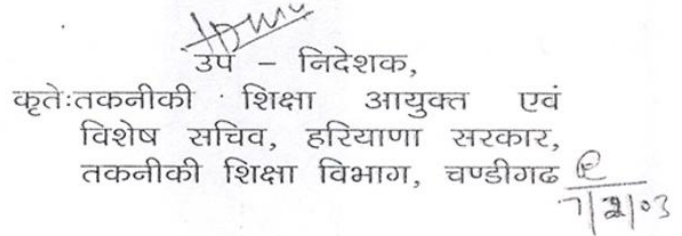 उप - निदेशक,
कृतेःतकनीकी शिक्षा आयुक्त एवं
विशेष सचिव, हरियाणा सरकार,
तकनीकी शिक्षा विभाग, चण्डीगढ
7/2/03